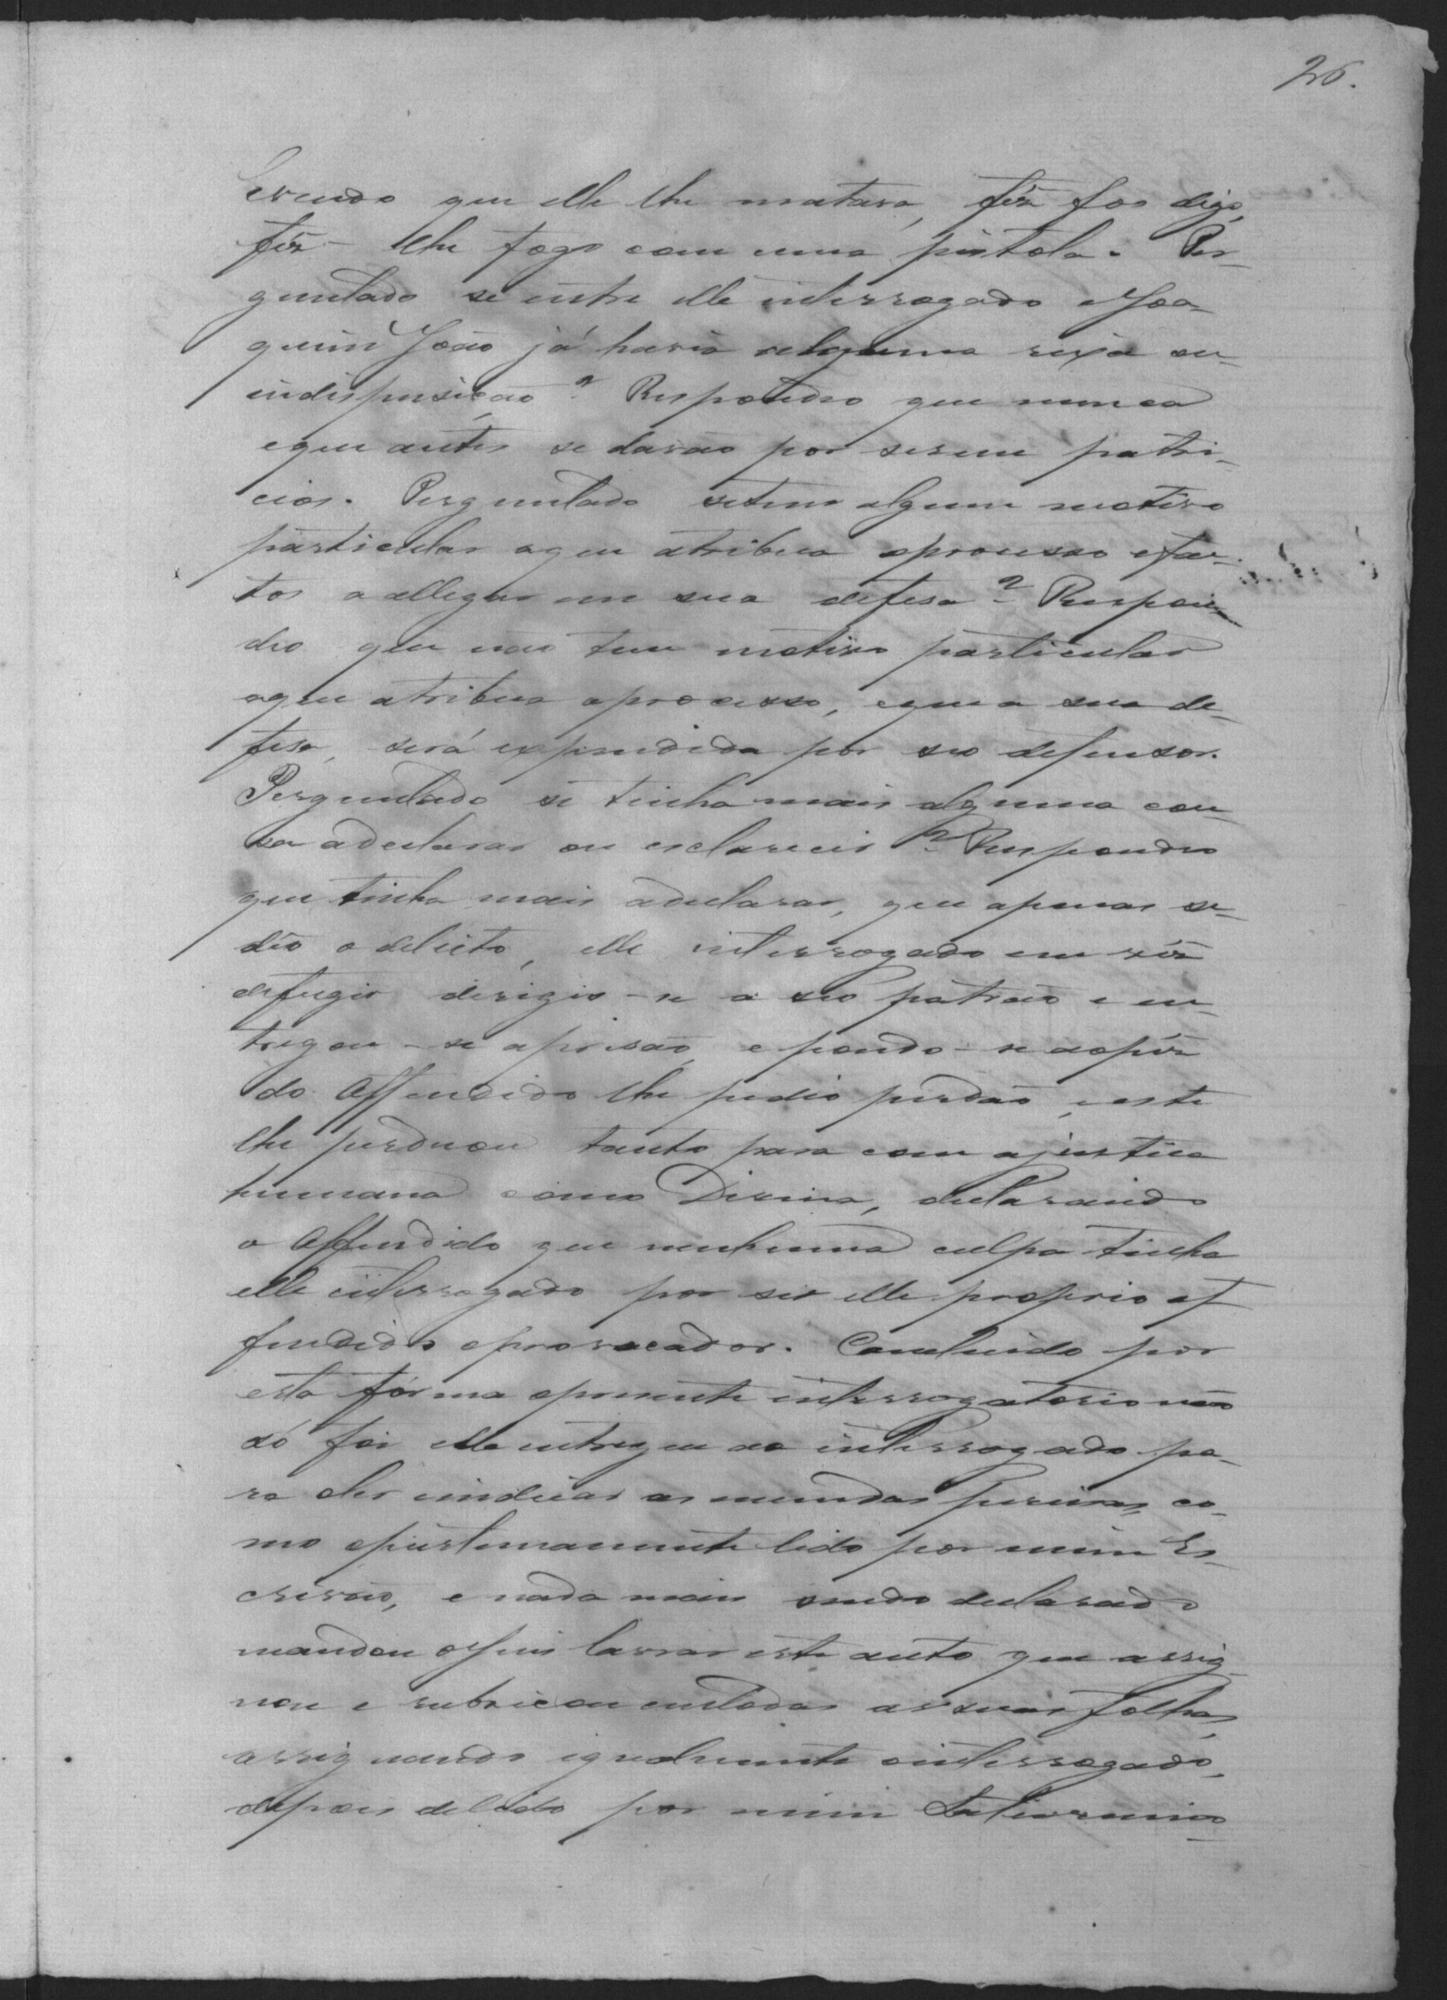 26.
Crendo que elle lhe matava, fêz fos digo,
fêz-lhe fogo com uma pistola. Per-
guntado se entre elle interrogado e Joa-
quim João já havia alguma rixa ou
indisposição? Respondeo que nunca
e que antes se davão por serem patri-
cios. Perguntado se tem algum motivo
particular a que atribua o processo e fac-
tos a allegar em sua defesa? Respon-
deo que não tem motivo particular
a que atribua o processo, e que a sua de-
fesa, será expendida por seo defensor.
Perguntado se tinha mais alguma cou-
sa a declarar ou esclarecer? Respondeo
que tinha mais a declarar, que apenas se
deo o delicto, elle interrogado em vêz
de fugir dirigio-se a seo patrão e en-
tregou-se a prisão, e pondo-se aos péz
do Offendido lhe pedio perdão, e este
lhe perduou tanto para com a justica
humana como Divina, declarando
o Offendido que nenhuma culpa tinha
elle interrogado por ser elle proprio of
fendido o provocador. Concluido por
esta fórma o presente interrogatorio não
só foi elle entregue ao interrogado pa-
ra ler e indicar as emendas precisas, co-
mo foi ultimamente lido por mim Es-
crivão, e nada mais sendo declarado
mandou o Juis lavrar este auto que assig
nou e rubricou em todas as suas folhas,
assignando igualmente o interrogado,
depois de lido por mim